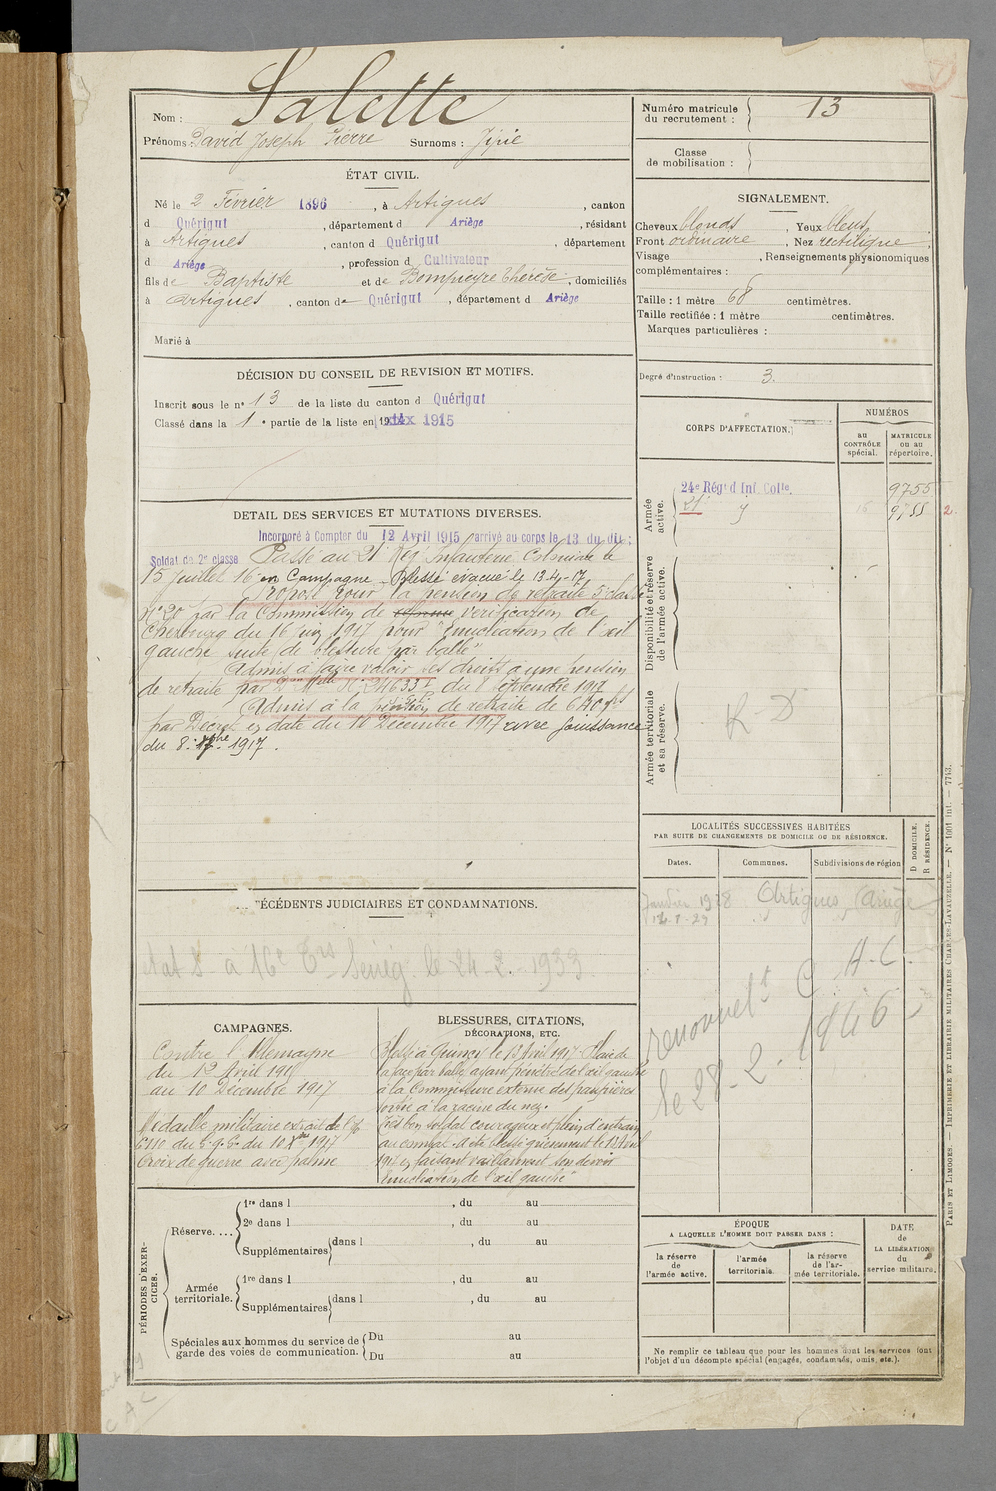 Nom : Salette
Prénoms : David Joseph Pierre Surnoms :
ÉTAT CIVIL.
Né le 2 Février 1896, à Artigues, canton
d Quérigut, département d Ariège, résidant
à Artigues, canton d Quérigut, département
d Ariège, profession d Cultivateur
fils de Baptiste et de Bompieyre Thérèse, domiciliés
à Artigues, canton de Quérigut, département d Ariège
Marié à
DÉCISION DU CONSEIL DE REVISION ET MOTIFS.
Inscrit sous le n° 13 de la liste du canton d Quérigut
Classé dans la 1e partie de la liste en 1915
DETAIL DES SERVICES ET MUTATIONS DIVERSES.
Incorporé à Compter du 12 Avril 1915 arrivé au corps le 13 du dit ;
Soldat de 2e classe Passé au 21 Reg Infanterie Coloniale le
15 juillet 16 en Campagne - Blessé évacué le 13-4-17
Proposé pour la pension de retraite 5 classe
n° 20 par la Commission de réforme vérification de
Cherbourg du 16 juin 1917 pour "Enucléation de l'œil
gauche suite de blessure par balle"
Admis à faire valoir ses droits à une pension
de retraite par D on Mlle N° 24633 du 8 septembre 1917
Admis à la pension de retraite de 640 f
par Décret en date du 10 Décembre 1917 avec jouissance
du 8. 7bre 1917.
ÉCÉDENTS JUDICIAIRES ET CONDAMNATIONS.
à 16e Trs Sénég. le 24-2-1933
CAMPAGNES.
Contre l'Allemagne
du 12 Avril 1915
au 10 Décembre 1917
Médaille militaire extrait de l'
du G.Q.G. du 10 Xbre 1917
Croix de guerre avec palme
BLESSURES, CITATIONS,
DÉCORATIONS, ETC.
Blessé à Quincy le 13 Avril 1917 - Plaie de
la face par balle ayant pénétré de l'œil gauche
à la Commissure externe des paupières
sortie à la racine du nez.
Très bon soldat courageux et plein d'entrain
au combat. A été blessé grièvement le 13 Avril
1917 en faisant vaillamment son devoir
Enucléation de l'œil gauche"
PÉRIODES D'EXERCICES.
Réserve....
1re dans l , du au
2e dans l , du au
Supplémentaires dans l , du au
Armée territoriale.
1re dans l , du au
Supplémentaires dans l , du au
Spéciales aux hommes du service de garde des voies de communication.
Du au
Du au
Numéro matricule du recrutement : 13
Classe de mobilisation :
SIGNALEMENT.
Cheveux blonds, Yeux bleus,
Front ordinaire, Nez rectiligne,
Visage , Renseignements physionomiques
complémentaires :
Taille : 1 mètre 68 centimètres.
Taille rectifiée : 1 mètre centimètres.
Marques particulières :
Degré d'instruction : 3.
CORPS D'AFFECTATION.
NUMÉROS
au CONTRÔLE spécial.
MATRICULE ou au répertoire.
Armée active.
24e Régt d'Inf. Colle. 9755
21 9755 2
Disponibilité et réserve de l'armée active.
Armée territoriale et sa réserve.
R-D
LOCALITÉS SUCCESSIVES HABITÉES
PAR SUITE DE CHANGEMENTS DE DOMICILE OU DE RÉSIDENCE.
Dates. Communes. Subdivisions de région
D DOMICILE.
R RÉSIDENCE.
Janvier 1928 Artigues (Ariège)
renouvelt C A.C.
le 28-2-1946
ÉPOQUE
A LAQUELLE L'HOMME DOIT PASSER DANS :
la réserve de l'armée active.
l'armée territoriale.
la réserve de l'armée territoriale.
DATE de LA LIBÉRATION du service militaire.
Ne remplir ce tableau que pour les hommes dont les services font
l'objet d'un décompte spécial (engagés, condamnés, omis, etc.).
PARIS ET LIMOGES. — IMPRIMERIE ET LIBRAIRIE MILITAIRES CHARLES-LAVAUZELLE. — N° 1001 int. — 7743.